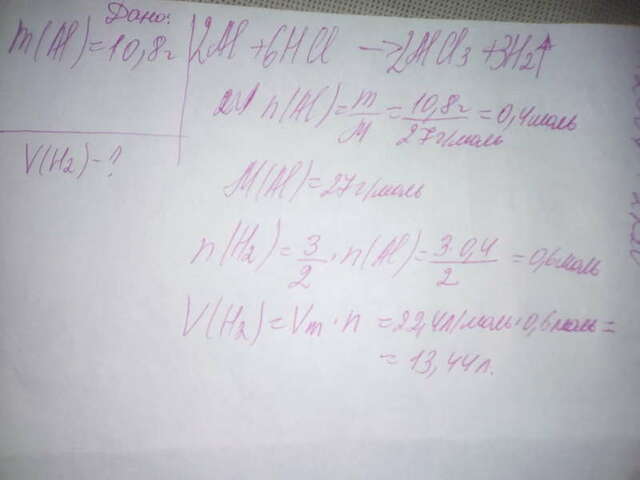 Дано:
m(Al)=10,8г
2Al+6HCl → 2AlCl3+3H2↑
n(Al)=m/M=10,8г/27г/моль=0,4моль
V(H2)-?
M(Al)=27г/моль
n(H2)=3/2·n(Al)=3·0,4/2=0,6моль
V(H2)=Vm·n=22,4л/моль·0,6моль=
=13,44л.